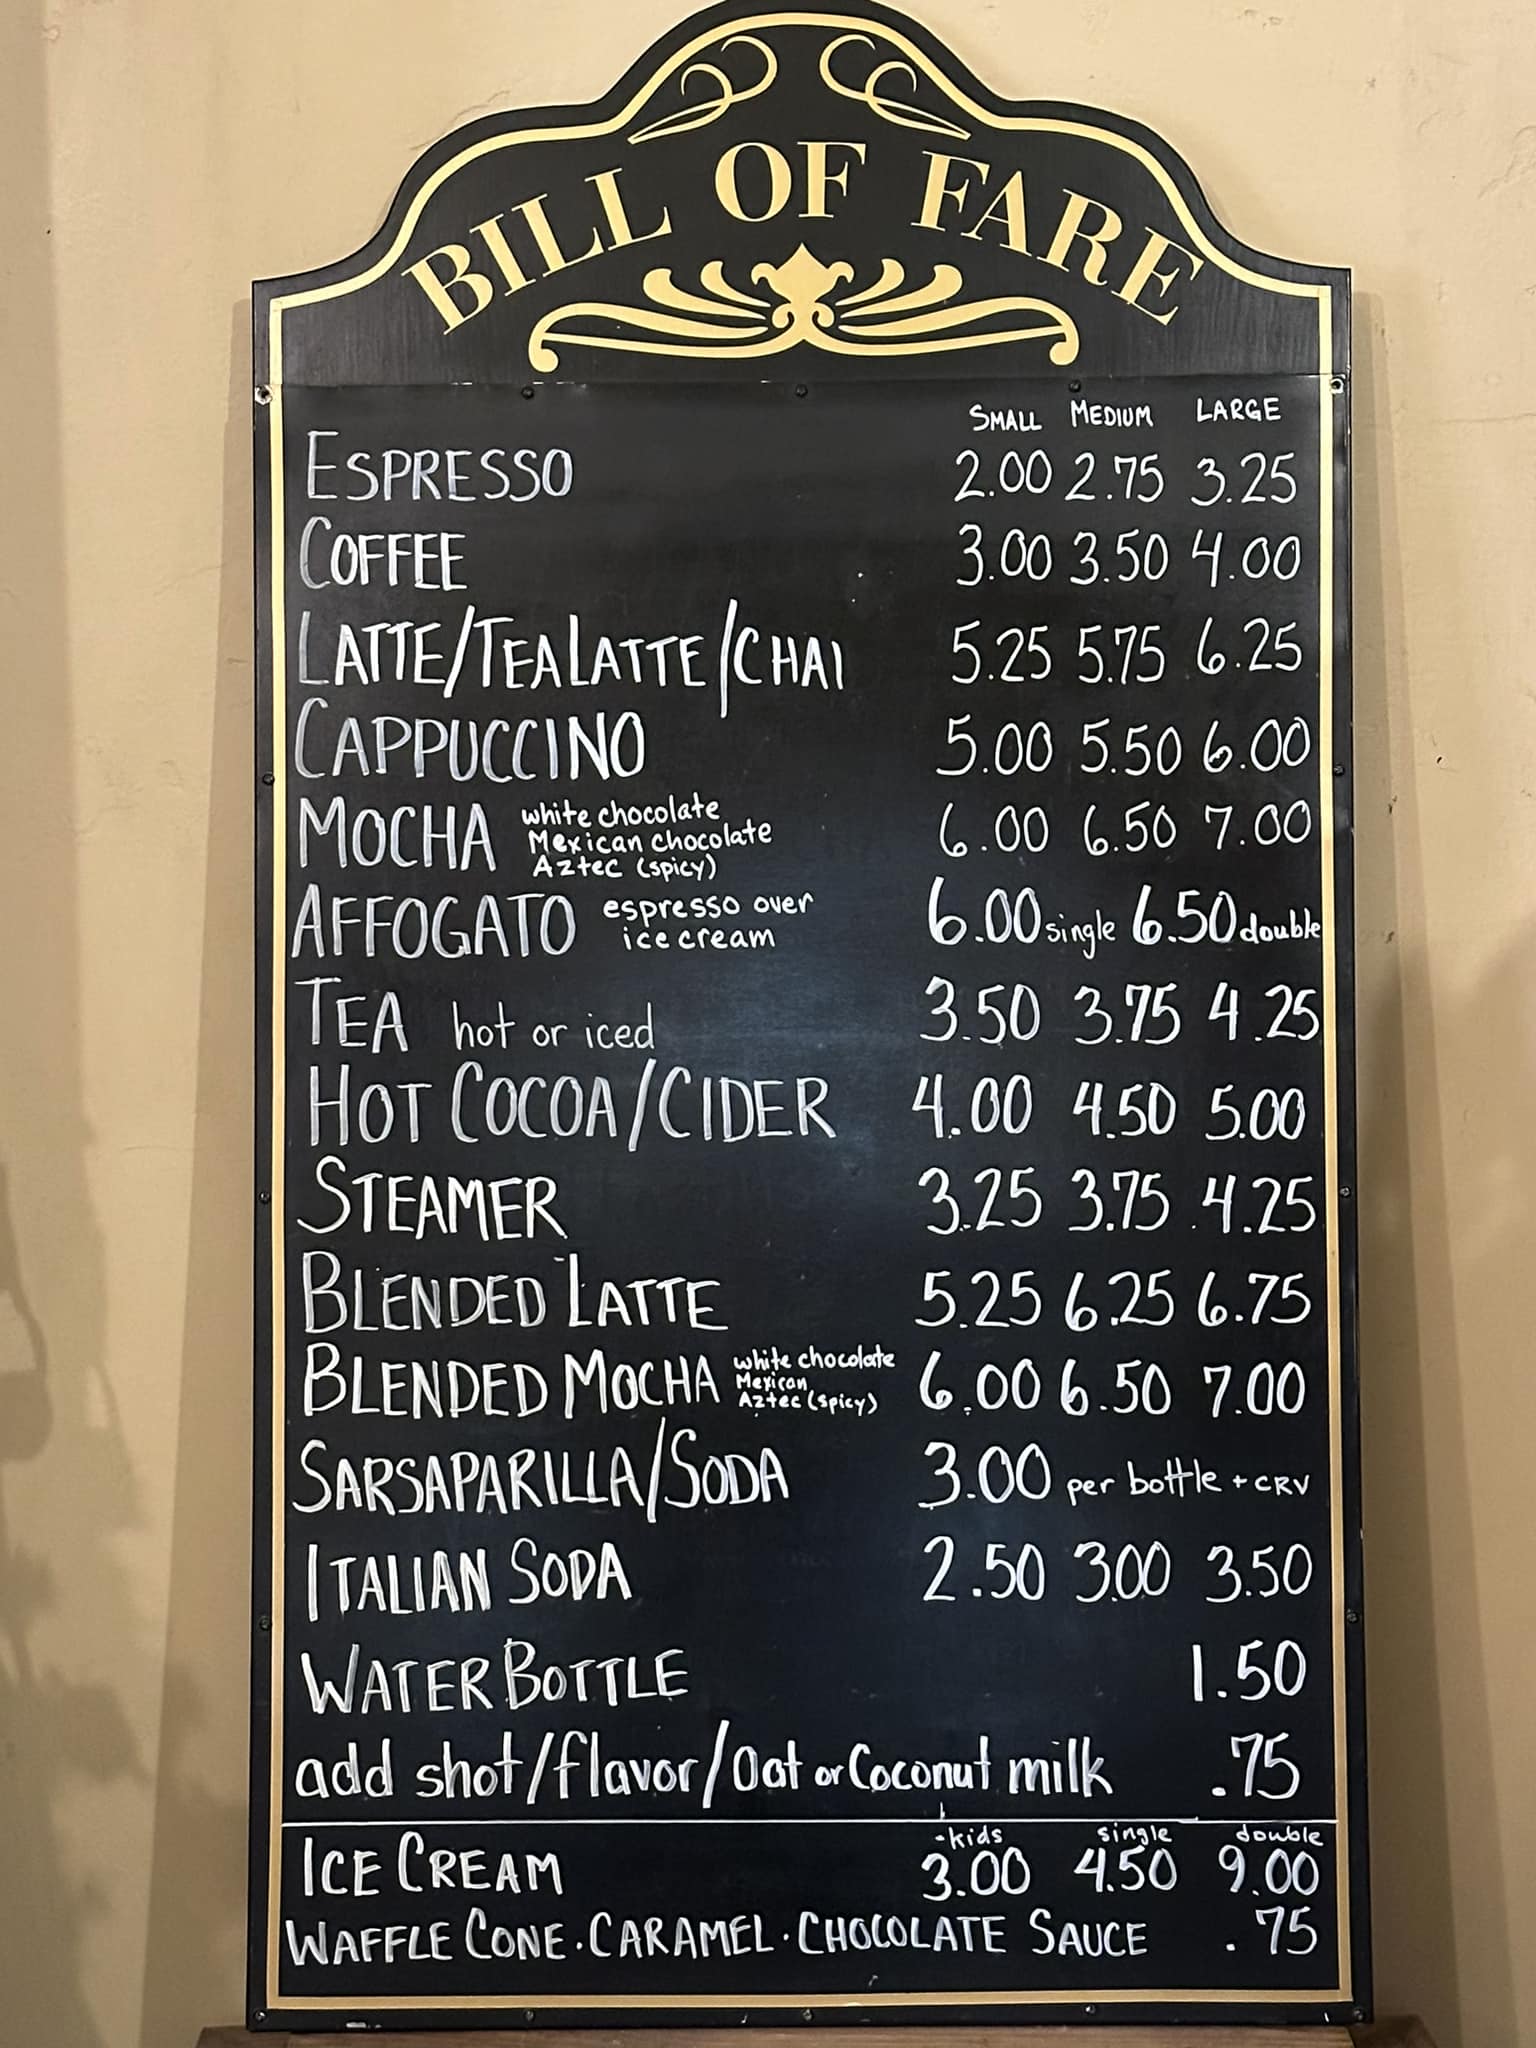 BILL OF FARE
SMALL MEDIUM LARGE
ESPRESSO 2.00 2.75 3.25
COFFEE 3.00 3.50 4.00
LATTE/TEA LATTE/CHAI 5.25 5.75 6.25
CAPPUCCINO 5.00 5.50 6.00
MOCHA white chocolate Mexican chocolate Aztec (spicy) 6.00 6.50 7.00
AFFOGATO espresso over ice cream 6.00 single 6.50 double
TEA hot or iced 3.50 3.75 4.25
HOT COCOA/CIDER 4.00 4.50 5.00
STEAMER 3.25 3.75 4.25
BLENDED LATTE 5.25 6.25 6.75
BLENDED MOCHA white chocolate Mexican Aztec (spicy) 6.00 6.50 7.00
SARSAPARILLA/SODA 3.00 per bottle + CRV
ITALIAN SODA 2.50 3.00 3.50
WATER BOTTLE 1.50
add shot/flavor/Oat or Coconut milk .75
-kids single double
ICE CREAM 3.00 4.50 9.00
WAFFLE CONE · CARAMEL · CHOCOLATE SAUCE .75